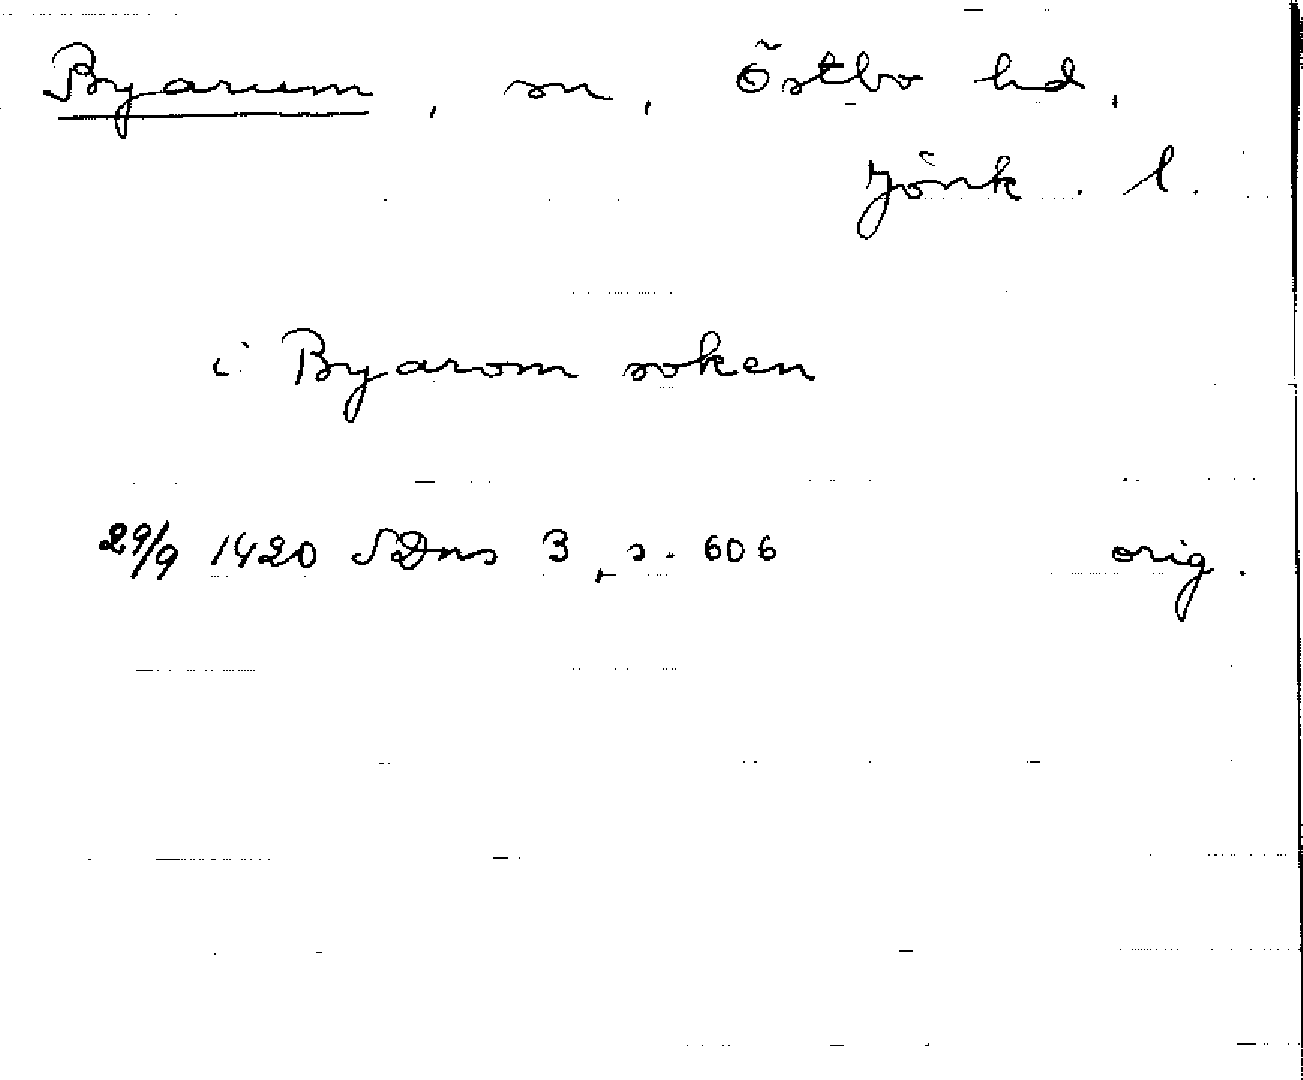 Byarum, sn, Östbo hd,
Jönk. l.
i Byarom soken
29/9 1420 SDns 3, s. 606 orig.